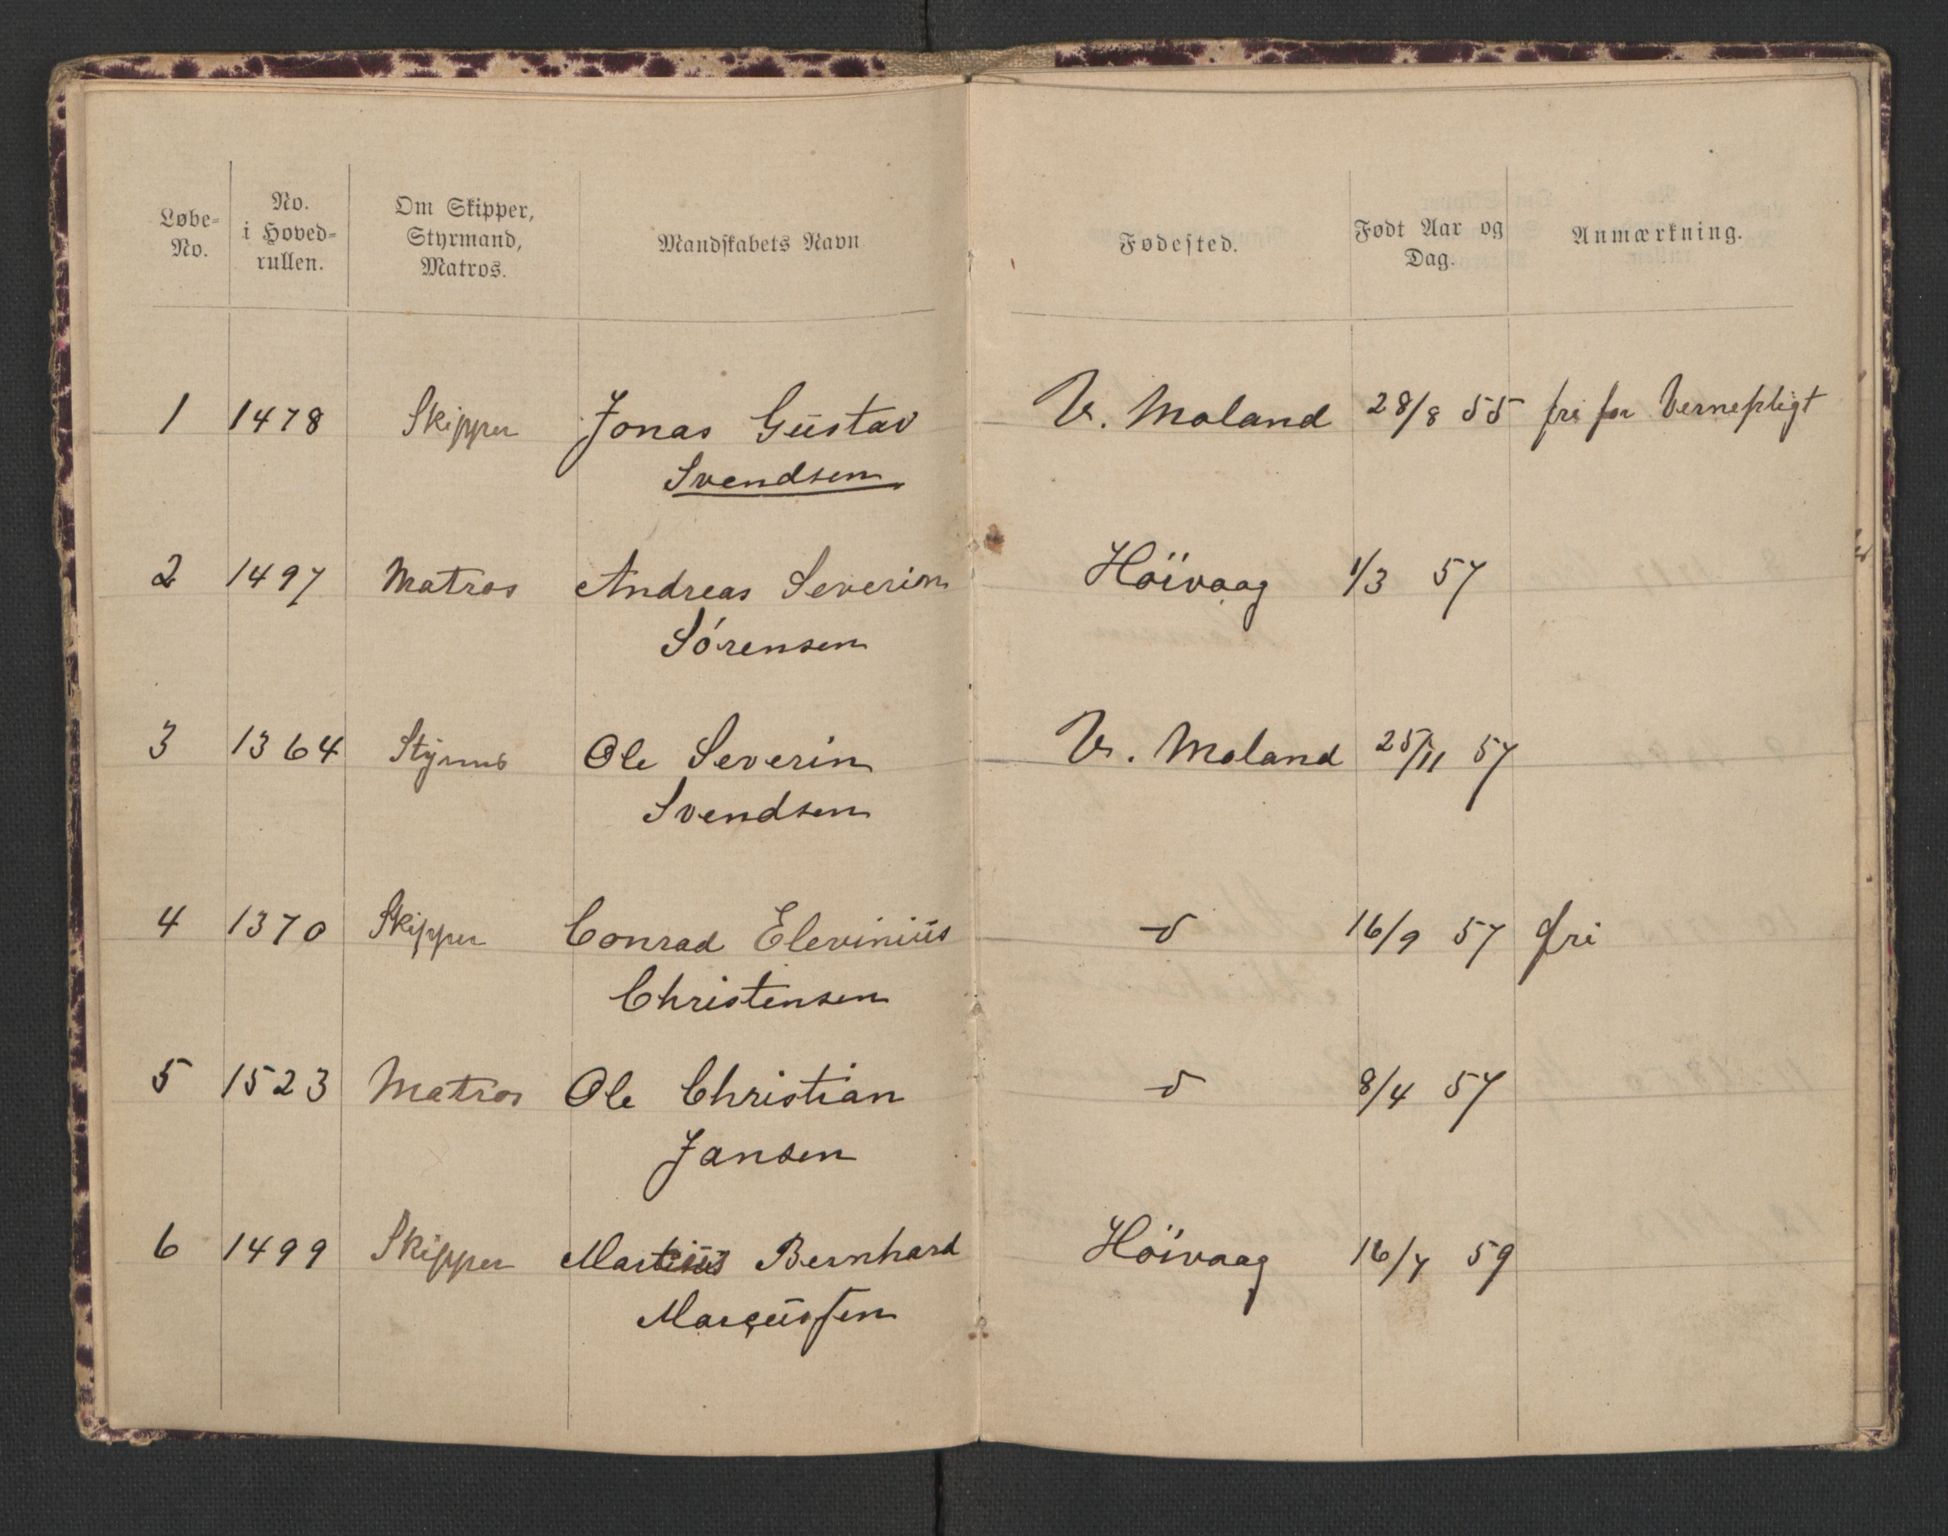 Løbe-No. | No. i Hoved-rullen. | Om Skipper, Styrmand, Matros. | Mandskabets Navn | Fødested. | Født Aar og Dag. | Anmærkning.
1 1478 Skipper Jonas Gustav V. Moland 28/8 55 fri for Vernepligt
Svendsen
2 1497 Matros Andreas Severin Höivaag 1/3 57
Sörensen
3 1364 Styrmd Ole Severin V. Moland 25/11 57
Svendsen
4 1370 Skipper Conrad Elevinius d 16/9 57 fri
Christensen
5 1523 Matros Ole Christian d 8/4 57
Jansen
6 1499 Skipper Martius Bernhard Höivaag 16/7 59
Marcussen